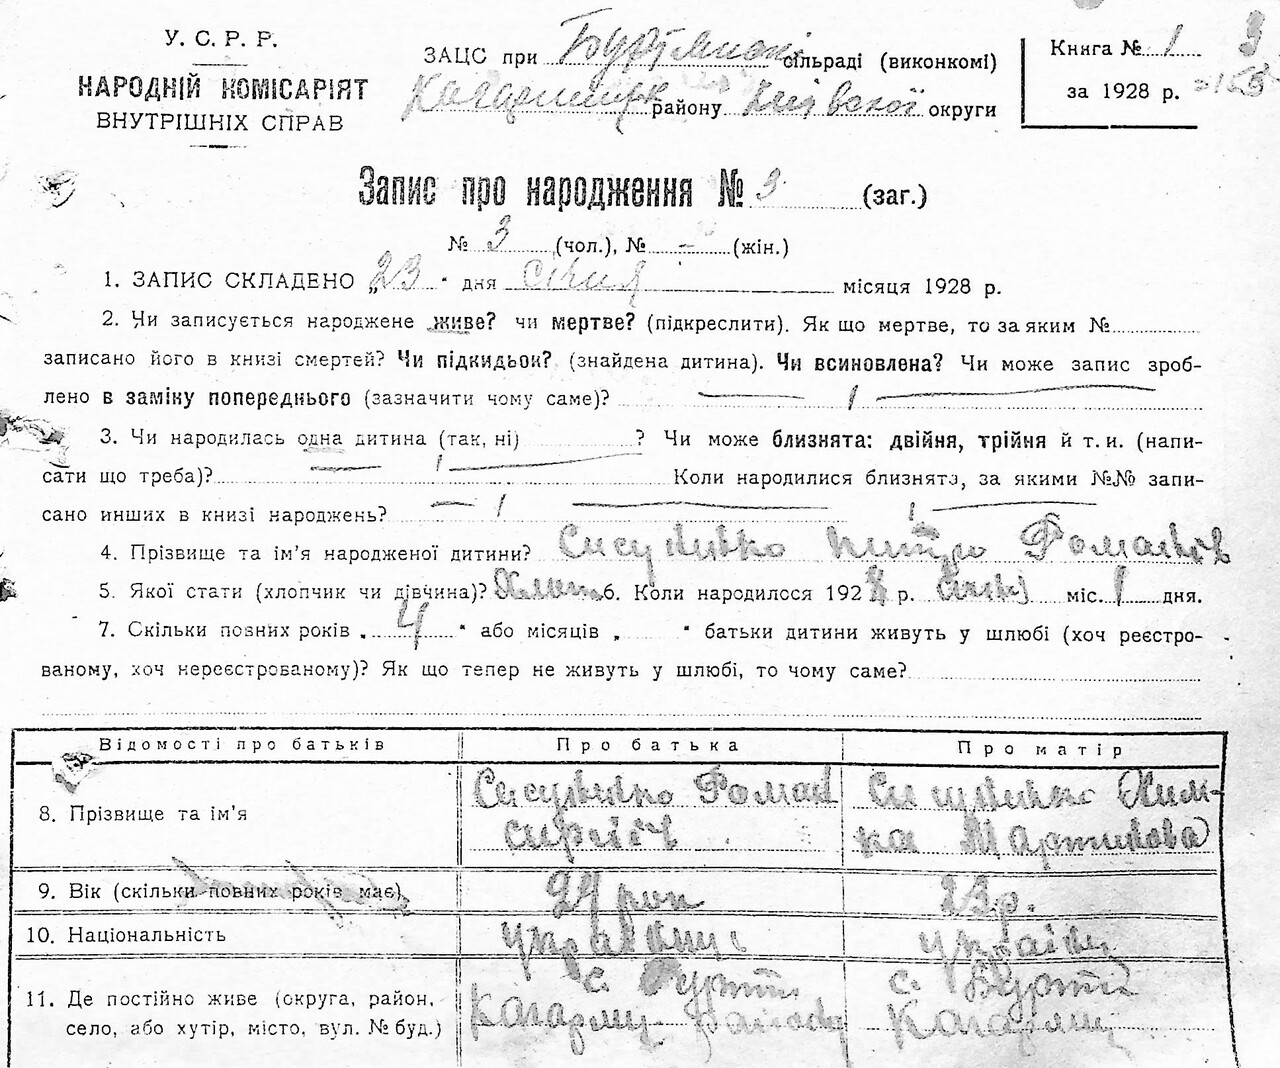 У. С. Р. Р.
НАРОДНІЙ КОМІСАРІЯТ
ВНУТРІШНІХ СПРАВ
ЗАЦС при сільраді (виконкомі)
району Київської округи
Книга № 1
за 1928 р.
3
Запис про народження № 3 (заг.)
№ 3 (чол.), № - (жін.)
1. ЗАПИС СКЛАДЕНО „23" дня січня місяця 1928 р.
2. Чи записується народжене живе? чи мертве? (підкреслити). Як що мертве, то за яким №
записано його в книзі смертей? Чи підкидьок? (знайдена дитина). Чи всиновлена? Чи може запис зроб-
лено в заміну попереднього (зазначити чому саме)?
3. Чи народилась одна дитина (так, ні) ? Чи може близнята: двійня, трійня й т. и. (напи-
сати що треба)? Коли народилися близнята, за якими №№ запи-
сано инших в книзі народжень?
4. Прізвище та ім'я народженої дитини?
5. Якої стати (хлопчик чи дівчина)? 6. Коли народилося 1928 р. січня міс. 1 дня.
7. Скільки повних років „4" або місяців „ " батьки дитини живуть у шлюбі (хоч реєстро-
ваному, хоч нереєстрованому)? Як що тепер не живуть у шлюбі, то чому саме?
Відомості про батьків Про батька Про матір
8. Прізвище та ім'я Роман Хим-
ка Мартинова
9. Вік (скільки повних років має) 24 роки 23 р.
10. Національність українець
11. Де постійно живе (округа, район, с. Бурти с. Бурти
село, або хутір, місто, вул. № буд.) Кагарлиц. району Кагарлиц